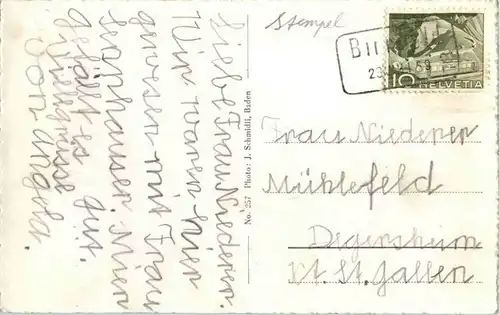 Liebe Frau Niederer.
Wir waren hier
gewesen mit Frau
Mier
gefällt es gut.
Viele grüsse
von angela.
No. 257 Photo: J. Schmidli, Baden
Stempel
10
HELVETIA
Frau Niederer
Mühlefeld
Degersheim
Kt. St. Gallen